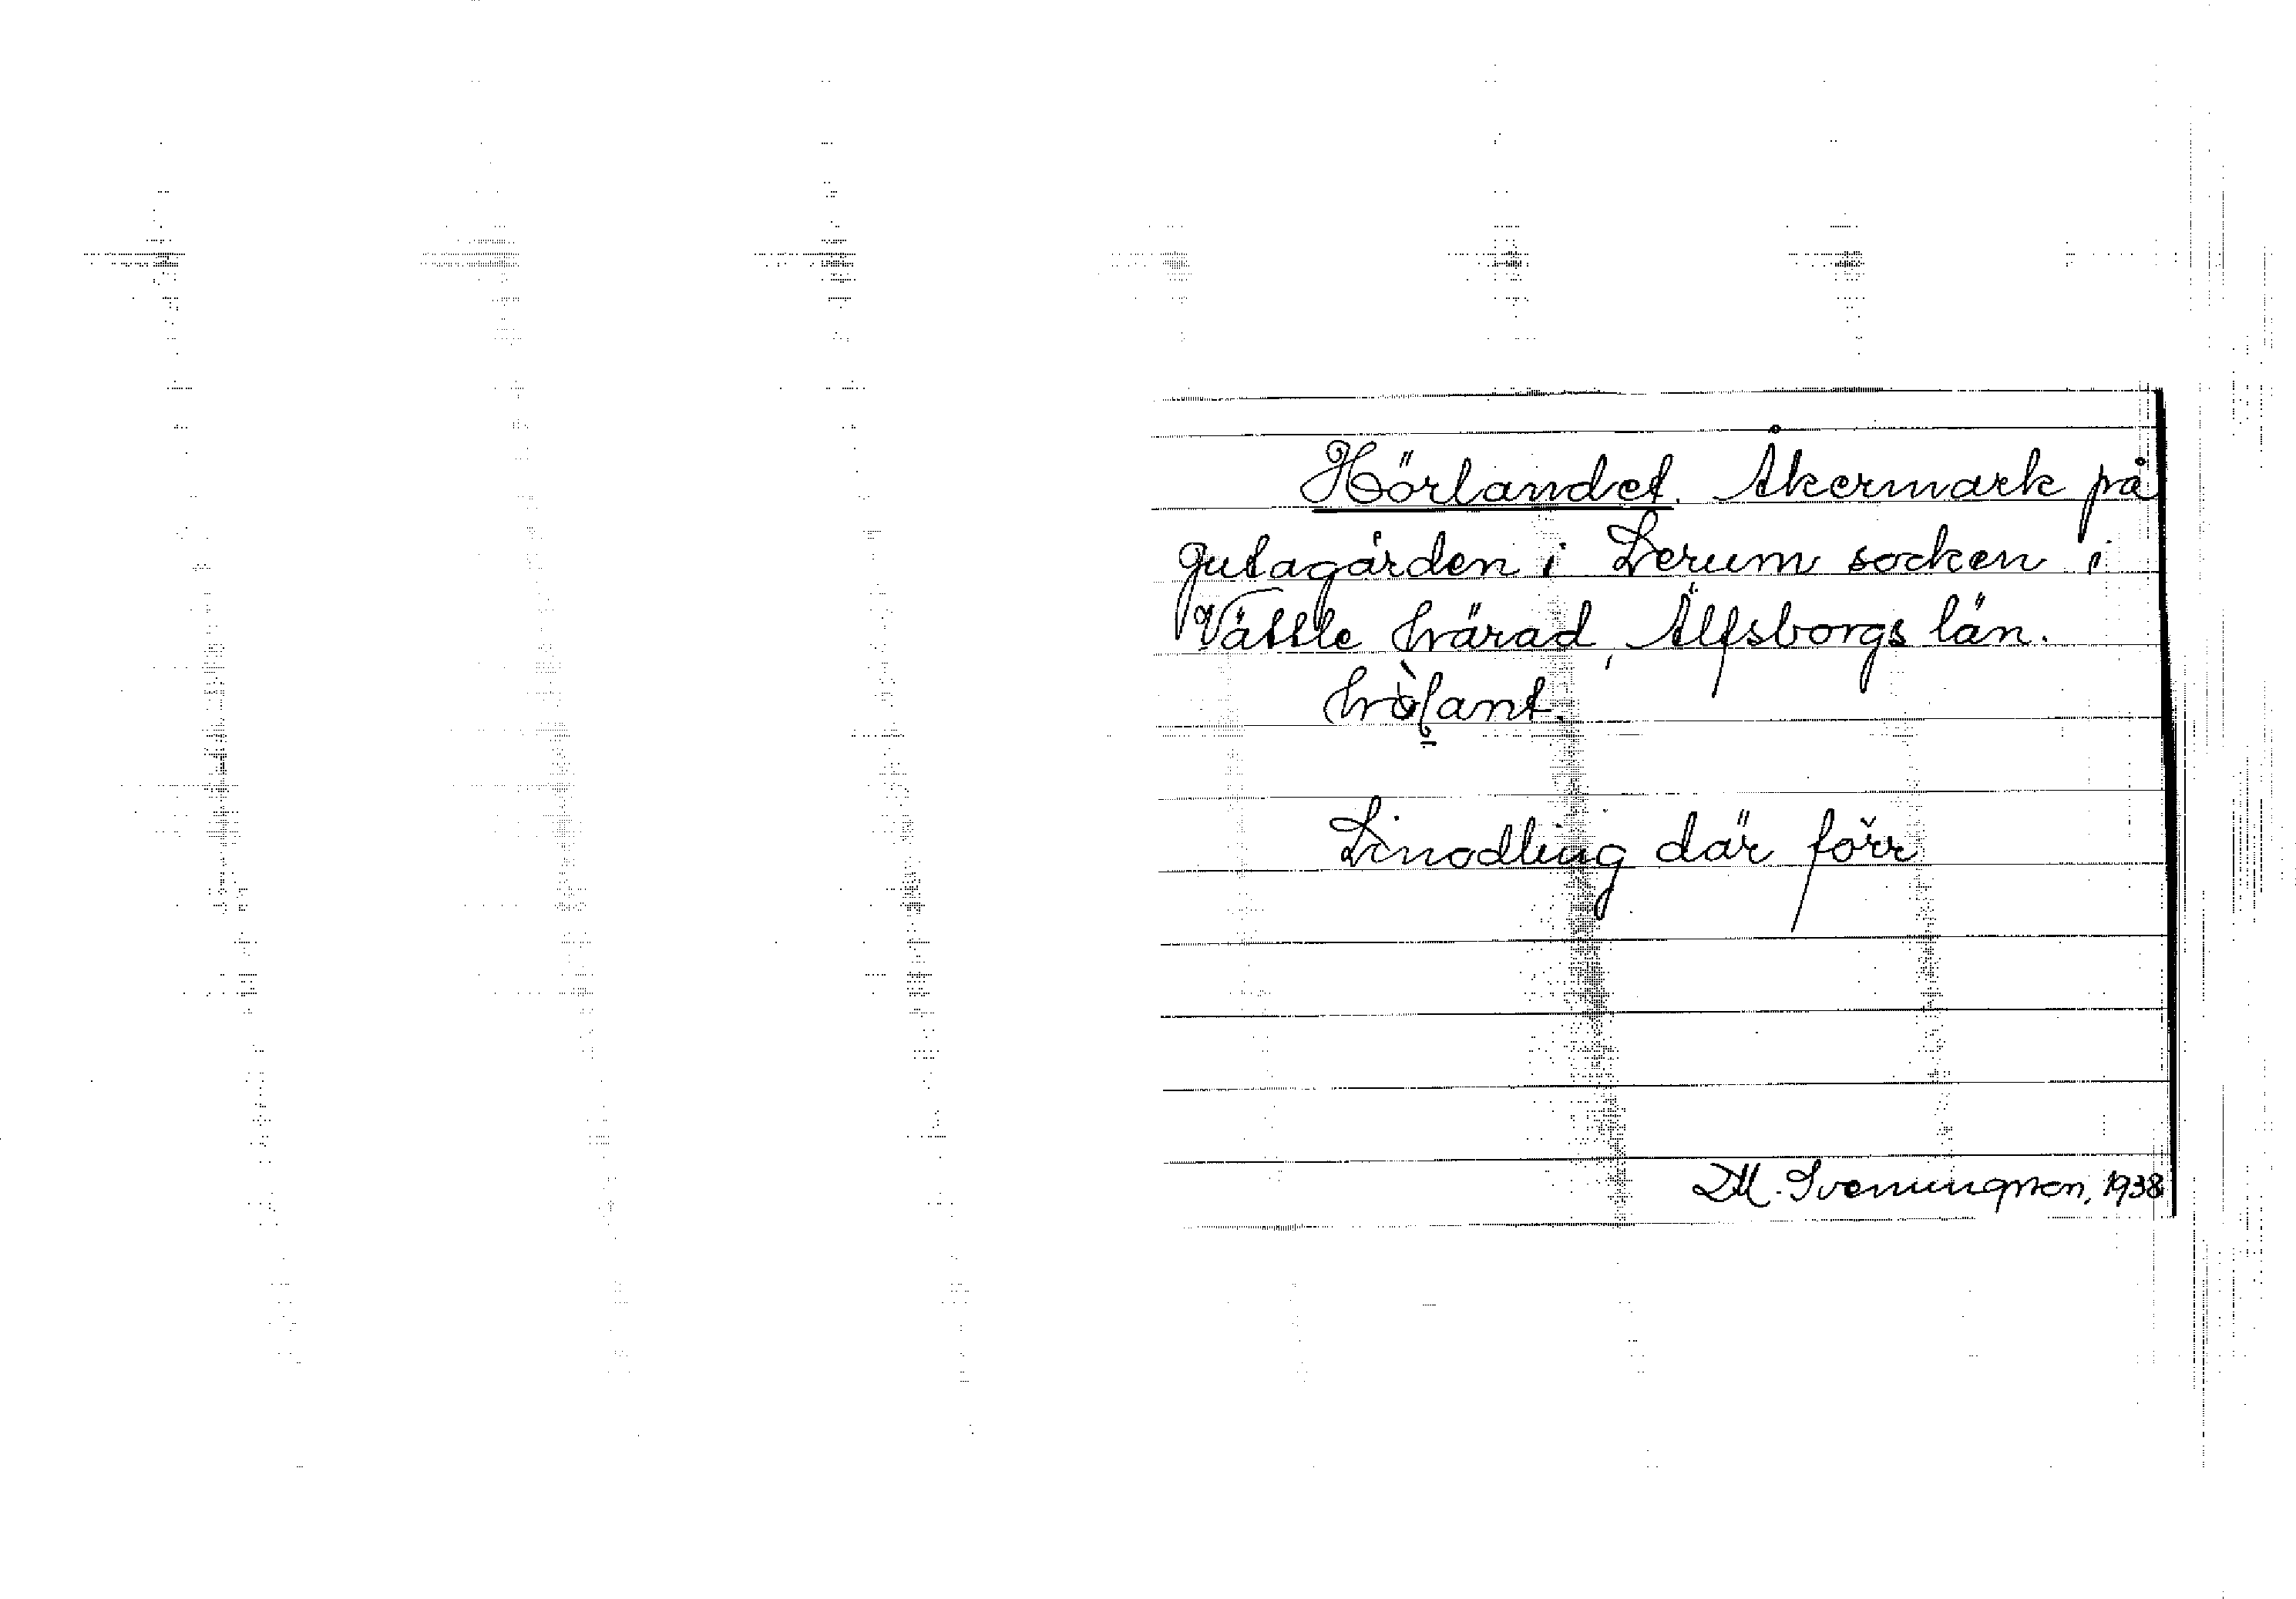 Hörlandet. Åkermark på
Gutagården i Lerum socken i
Vättle härad, Älfsborgs län.
Linodling där förr
D.M. Sveningson, 1938